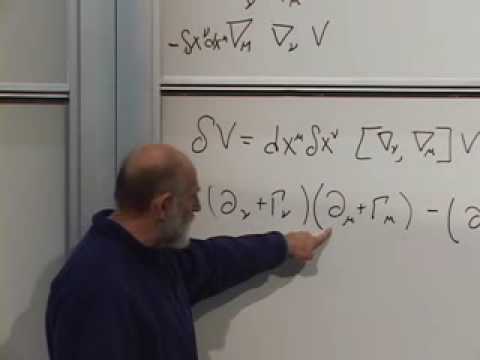 ν μ
-δx^ν dx^μ ∇_μ ∇_ν V
δV = dx^μ δx^ν [∇_ν, ∇_μ] V
(∂_ν + Γ_ν)(∂_μ + Γ_μ) - (∂